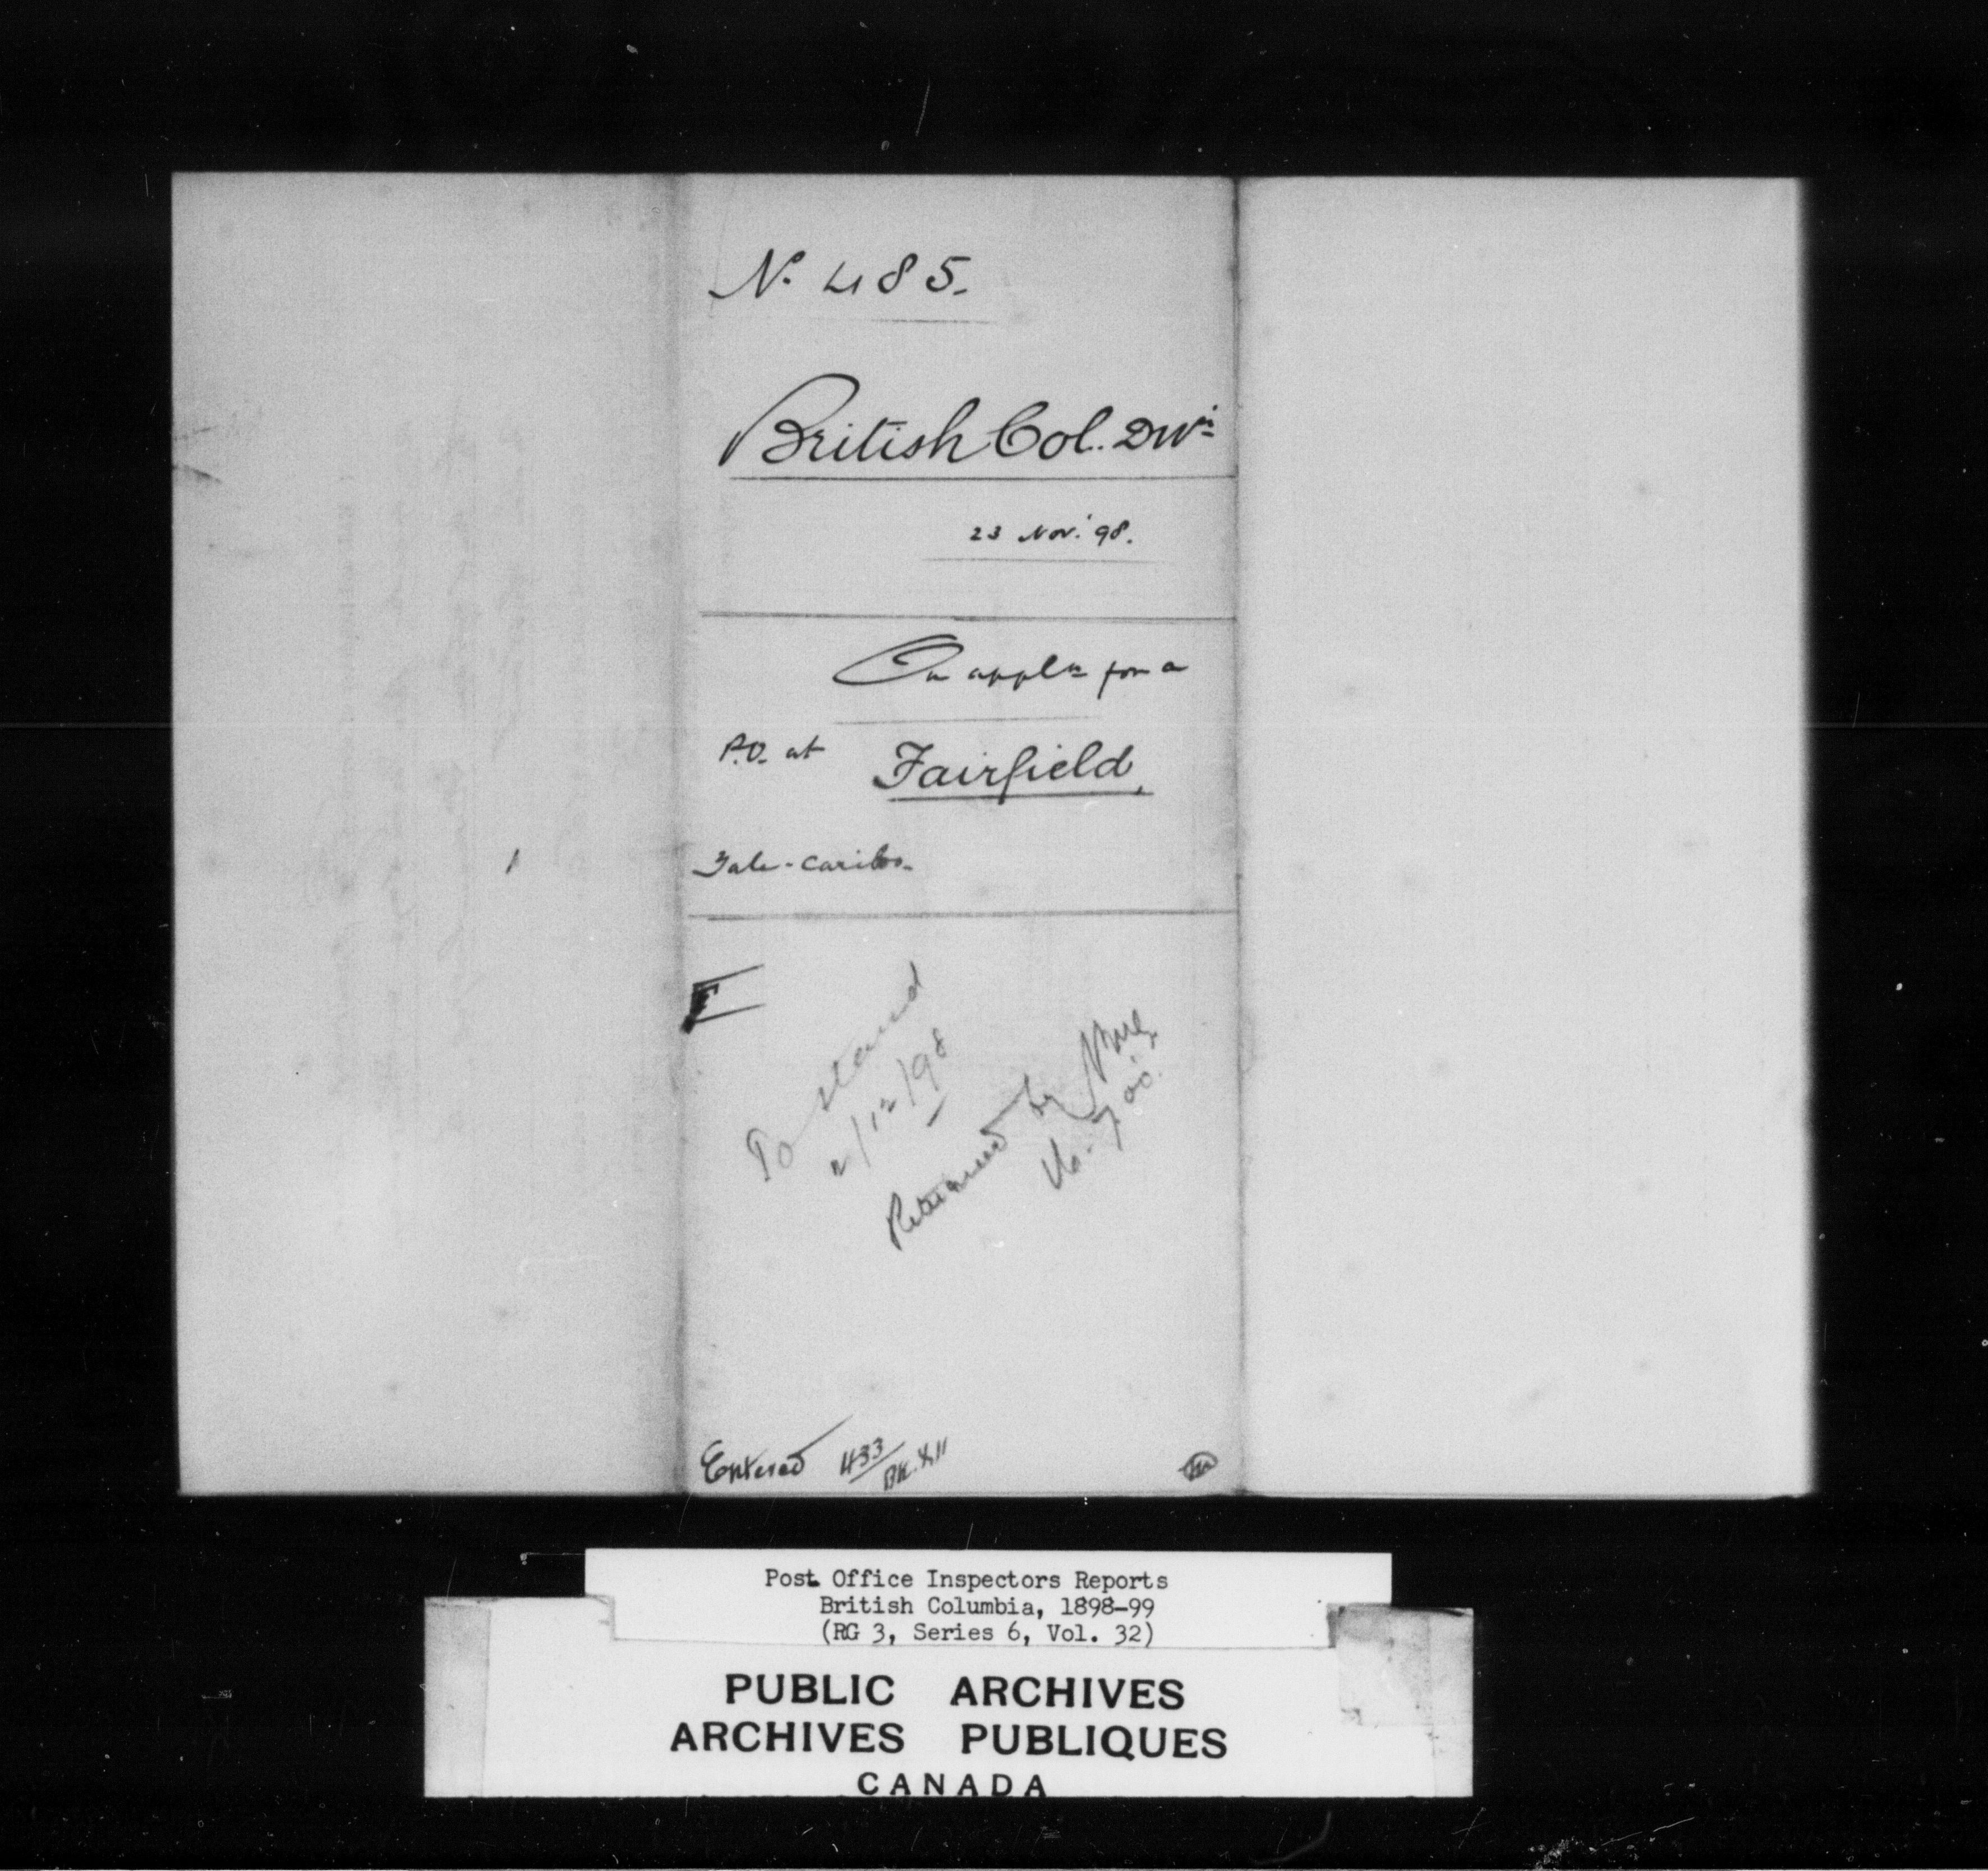 No. 485.
British Col. Divn
23 Nov. '98.
On appln for a
P.O. at Fairfield,
Yale-Cariboo.
F
To stand
2/12/98
Returned by
No. 700.
Entered 433
BK.
Post Office Inspectors Reports
British Columbia, 1898-99
(RG 3, Series 6, Vol. 32)
PUBLIC ARCHIVES
ARCHIVES PUBLIQUES
CANADA